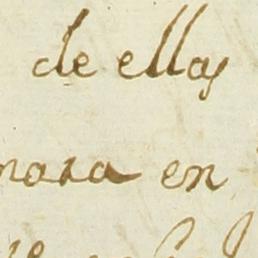 de ellas
mora en